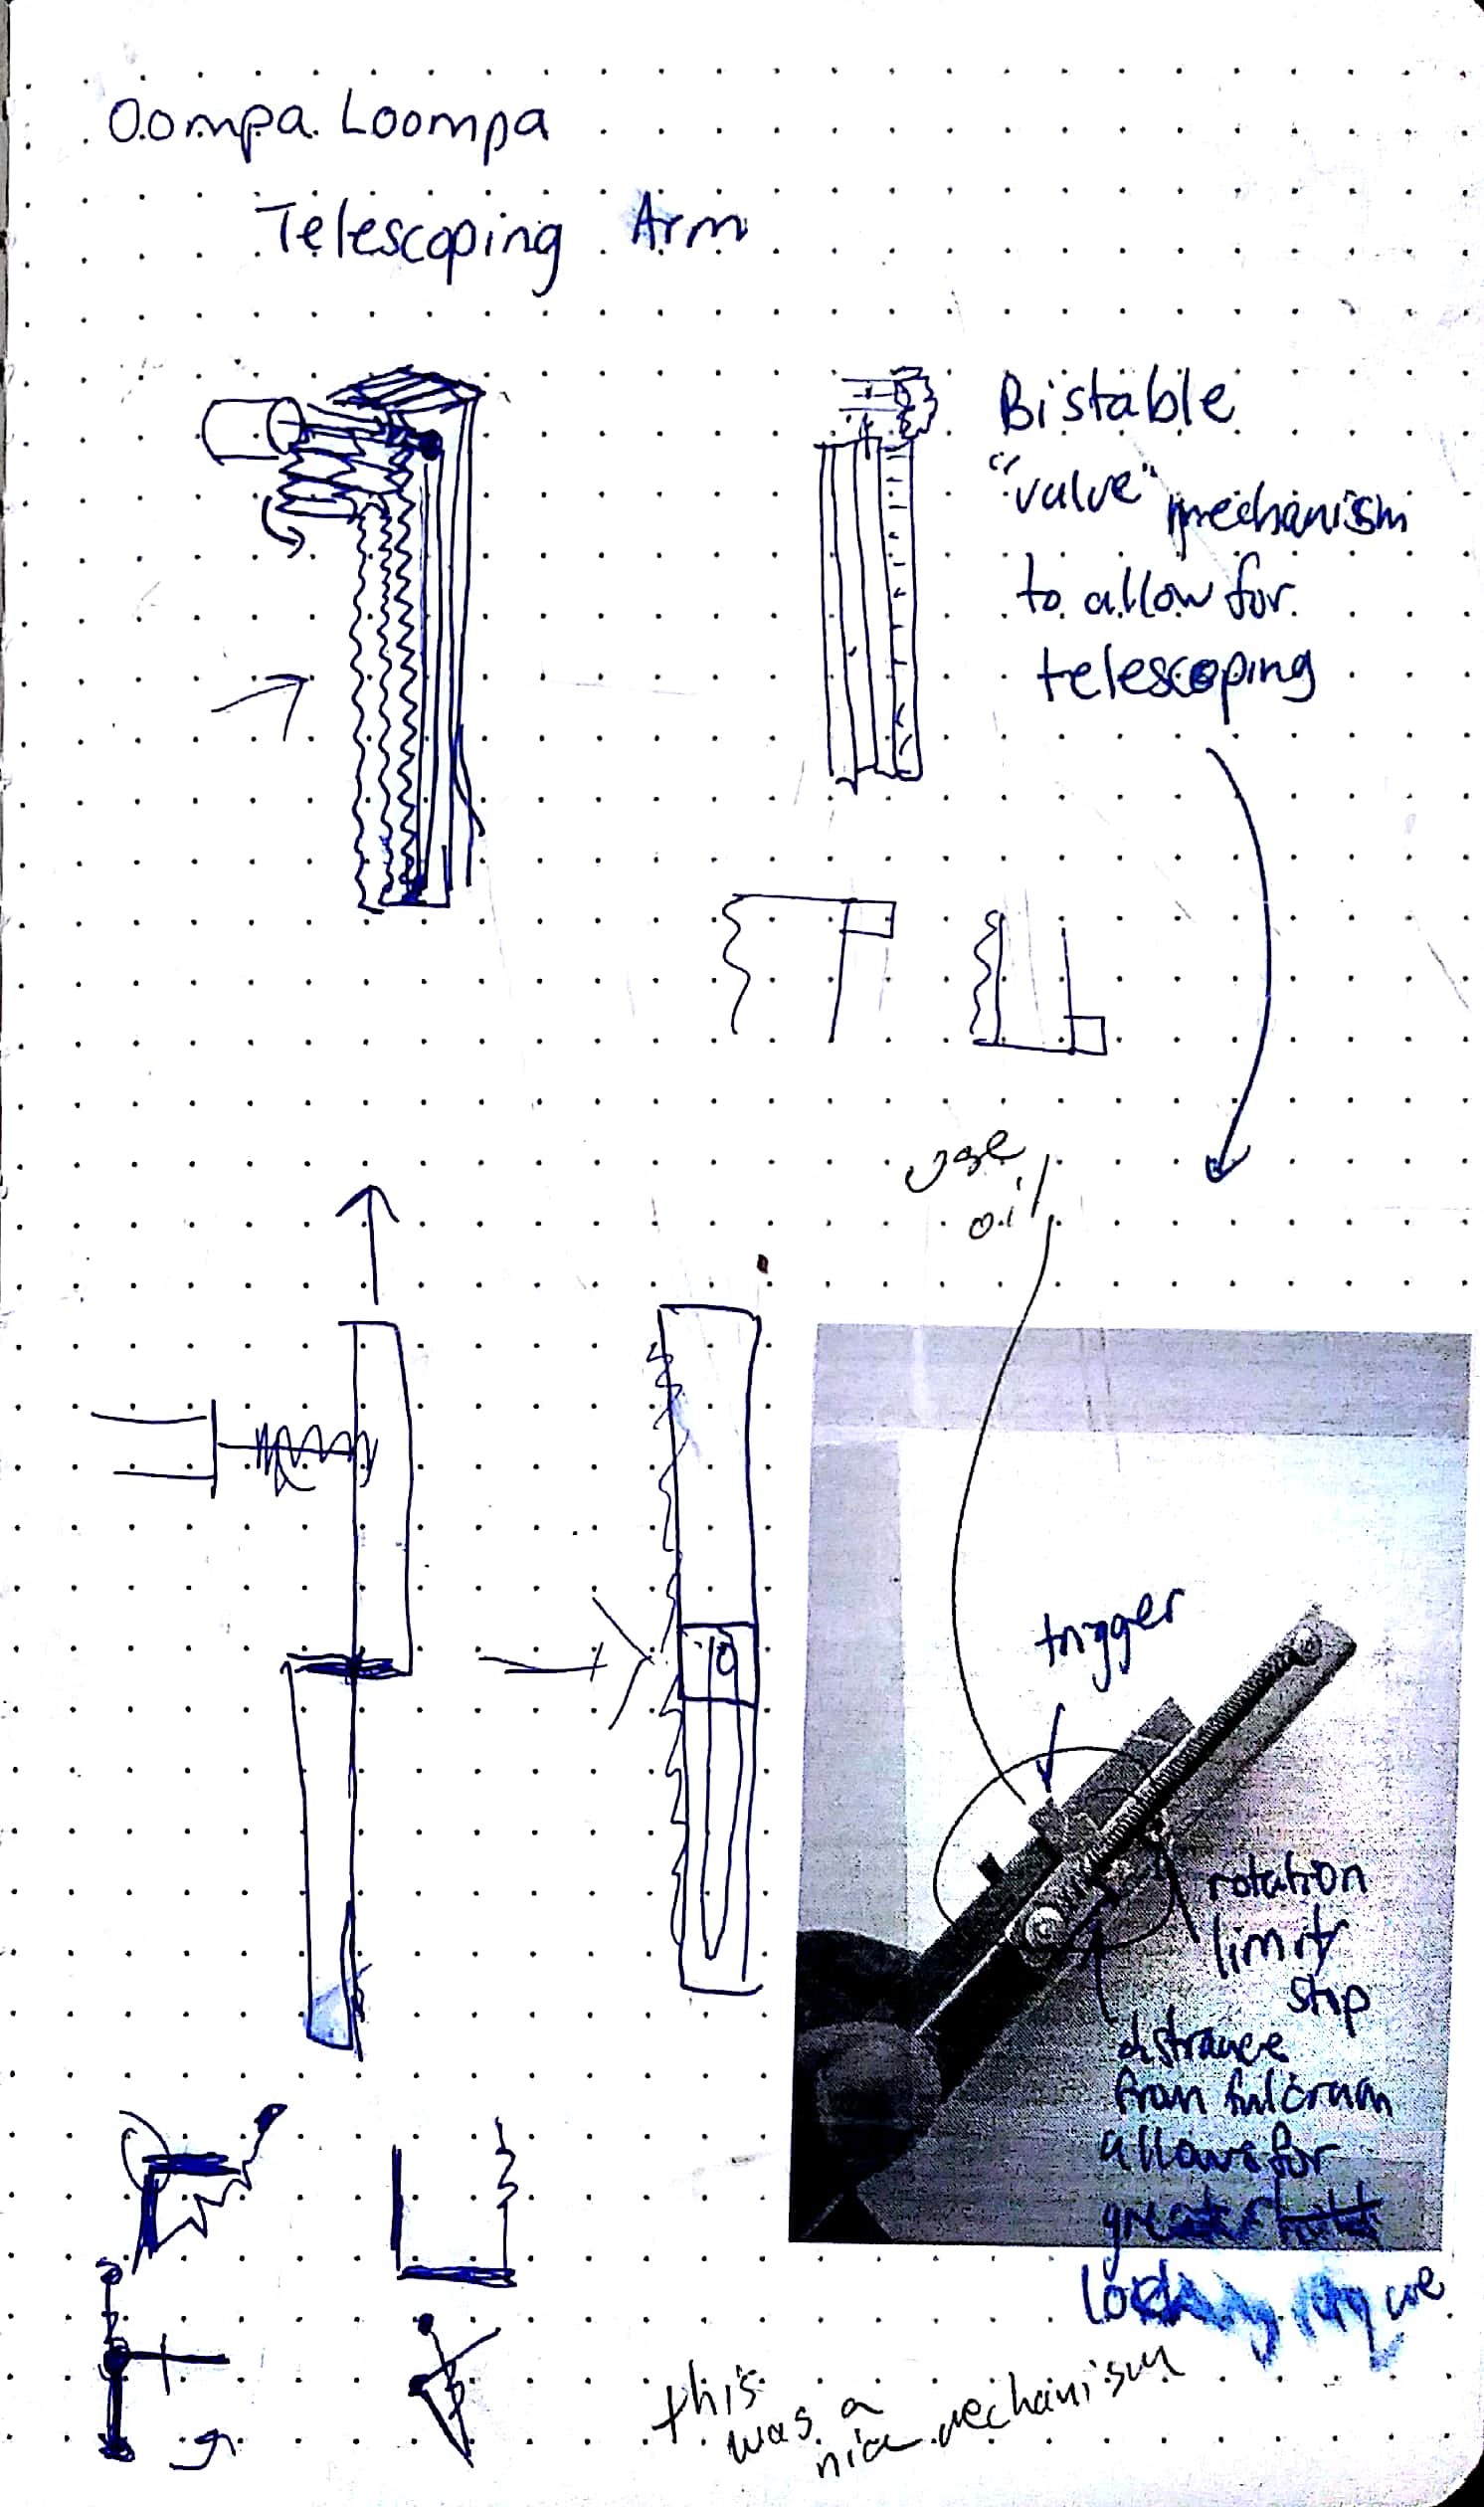 Oompa Loompa
Telescoping Arm
Bistable
"valve" mechanism
to allow for
telescoping
use
oil
trigger
rotation
limit
stop
distance
from fulcrum
allows for
greater
this
was a
nice mechanism